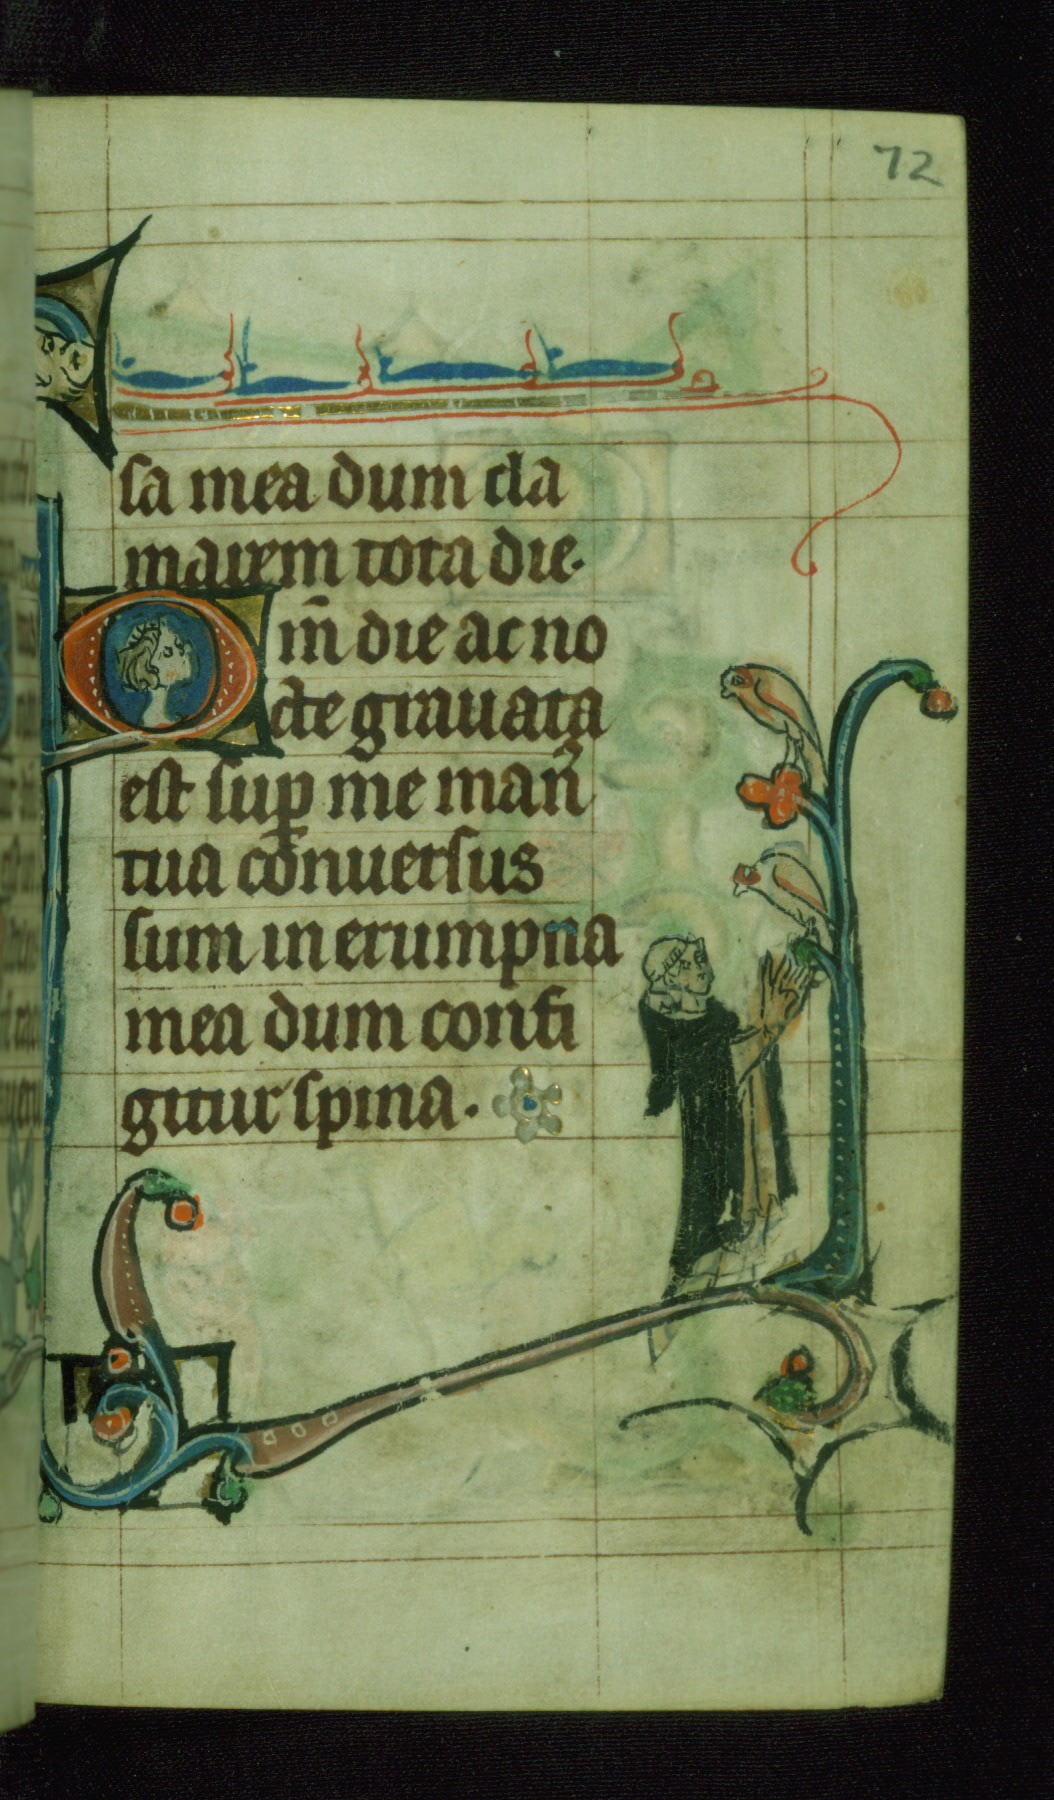 72
sa mea dum cla
marem tota die.
Qm̄ die ac no
cte grauata
est sup̱ me man᷒
tua cōnuersus
sum in erumpna
mea dum confi
gitur spina.